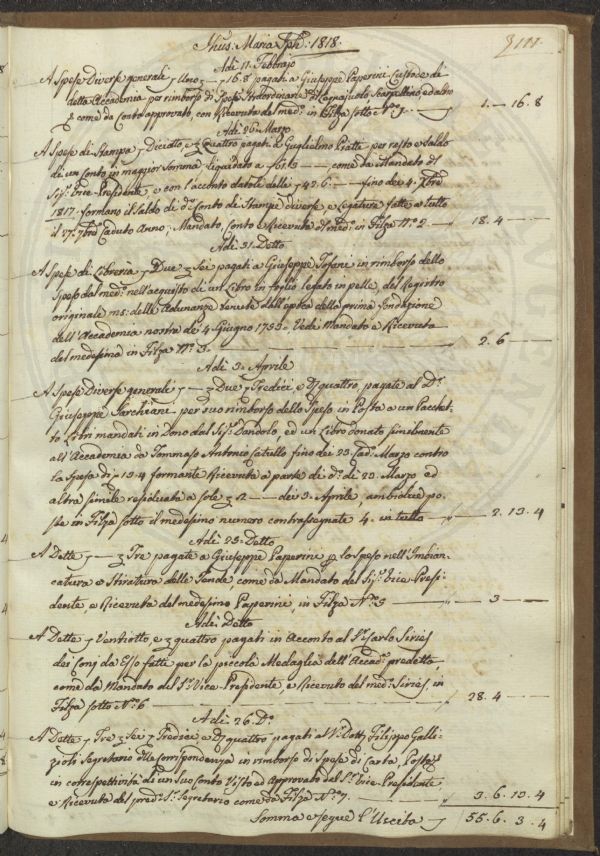 Jhus: Maria Jph: 1818.
Adì 11. Febbrajo
A Spese Diverse generali 7 Uno, — 16.8 pagati a Giuseppe Paperini Custode di
detta Accademia per rimborso di Spese
e come da Conto approvato, con Ricevuta del med.º in Filza sotto N.º 1 — 1. — 16. 8
Adì 26. Marzo
A Spese di Stampa 7 Diciotto, e 3 Quattro pagati a Guglielmo Piatti per resto e Saldo
di un Conto in maggior somma liquidato a come da Mandato di
Sig.r Vice-Presidente, e con l'acconto datoli delli 7 42.6. — fino dei 4. Xbre
1817. formano il Saldo di d.º Conto di Stampe diverse e Legature fatte a tutto
il 27. 7bre Caduto Anno; Mandato, Conto e Ricevuta del med.º in Filza N.º 2 — 18. 4 —
Adì 31. Detto
A Spese di Libreria 7 Due, 3 Sei pagati a Giuseppe Tofani in rimborso dello
Speso dal med.º nell'acquisto di un Libro in foglio legato in pelle, del Registro
originale ms: delle Adunanze tenute dall'epoca della prima fondazione
dell'Accademia nostra de 4. Giugno 1753. Vede Mandato e Ricevuta
del medesimo in Filza N.º 3 — 2. 6 —
Adì 3. Aprile
A Spese Diverse generali 7 — 3 Due, 7 Tredici e D quattro, pagate al D.r
Giuseppe Sarchiani per suo rimborso dello Speso in Posta a un Pacchet-
to Libri mandati in Dono dal Sig.r Dandolo, ed un Libro donato similmente
all'Accademia da Tommaso Antonio Catullo fino dei 23. cad.º Marzo contro
la Spesa di 7 13.4 formante Ricevuta a parte di d.º dì 23. Marzo ed
altra simile residuata a sole 3 2 — dei 3. Aprile, ambidue po-
ste in Filza sotto il medesimo numero contrassegnate 4. in tutto — 2. 13. 4
Adì 25. Detto
A Dette 7 — 3 Tre pagate a Giuseppe Paperini p lo Speso nell'Imbian-
catura e Stiratura delle Tende, come da Mandato del Sig.r Vice Presi-
dente, e Ricevuta del medesimo Paperini, in Filza N.º 5 — 3 —
Adì Detto
A Dette 7 Ventiotto, e 3 quattro pagati in Acconto al S.r Carlo Siriès
dei Conj da Esso fatti per la piccola Medaglia dell'Accad.ª predetta,
come da Mandato del S.r Vice-Presidente e Ricevuta del med.º Siriès, in
Filza sotto N.º 6 — 28. 4 —
Adì 26. D.º
A Dette 7 Tre 3 Sei 7 Tredici e D quattro, pagati al S.r Dott. Filippo Galli-
zioli Segretario delle Corrispondenze in rimborso di Spese di Carta, Posta
in correspettività di un suo Conto Visto ed Approvato dal S.r Vice-Presidente
e Ricevuta del pred.º S.r Segretario come da Filza N.º 7. — 3. 6. 13. 4
Somma e segue l'Uscita — 55. 6. 3. 4